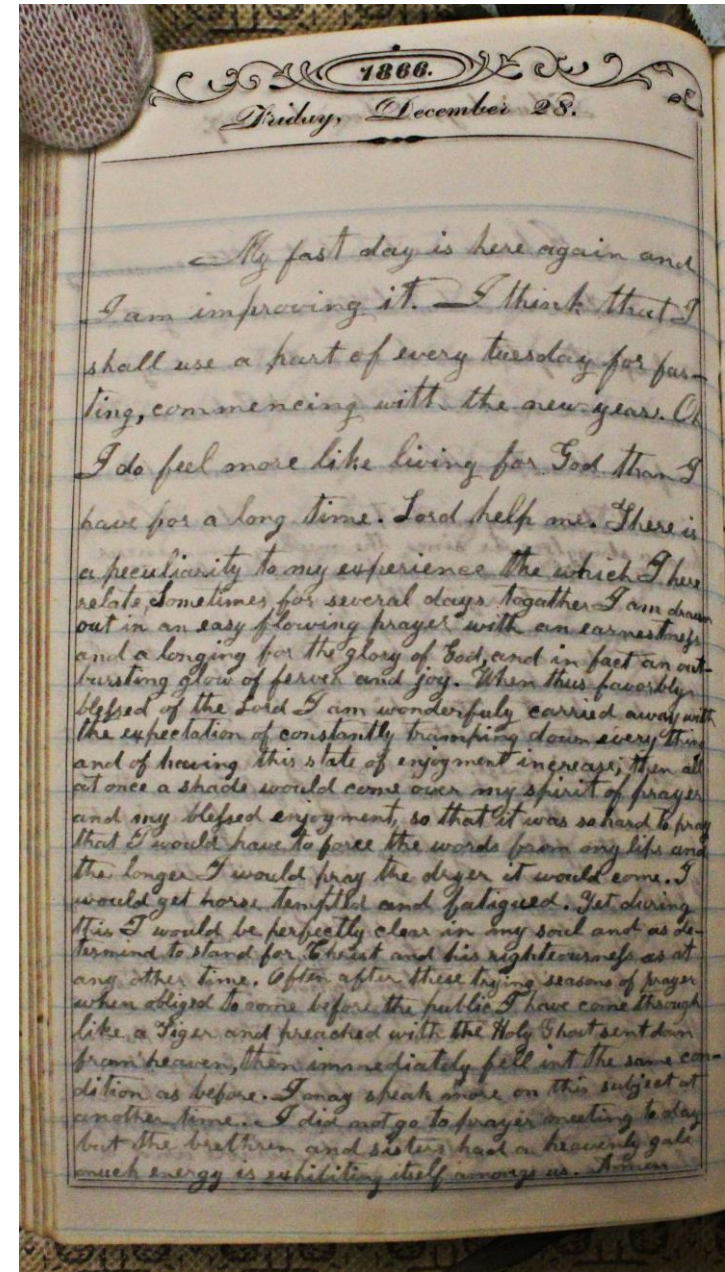 1866.
Friday, December 28.
My fast day is here again and
I am improving it. I think that I
shall use a part of every tuesday for fas-
ting, commencing with the new year. Oh
I do feel more like living for God than I
have for a long time. Lord help me. There is
a peculiarity to my experience the which I here
relate, Sometimes, for several days togather I am drawn
out in an easy flowing prayer with an earnestness
and a longing for the glory of God, and in fact an out-
bursting glow of ferver and joy. When thus favorbly
blessed of the Lord I am wonderfuly carried away with
the expectation of constantly tramping down every thing
and of having this state of enjoyment increase; then all
at once a shade would come over my spirit of prayer
and my blessed enjoyment, so that it was so hard to pray
that I would have to force the words from my lips and
the longer I would pray the dryer it would come. I
would get horse, tempted and fatigued. Yet during
this I would be perfectly clear in my soul and as de-
termind to stand for Christ and his righteousness as at
any other time. Often after these trying seasons of prayer
when obliged to come before the public I have come through
like a Tiger and preached with the Holy Ghost sent down
from heaven, then immediately fell int the same con-
dition as before. I may speak more on this subject at
another time. I did not go to prayer meeting to day
but the brethren and sisters had a heavenly gale
much energy is exhibiting itself amongs us. Amen